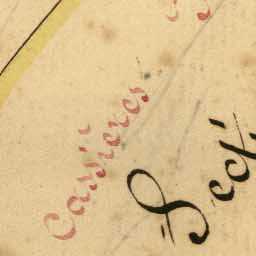 Carrières
Sect